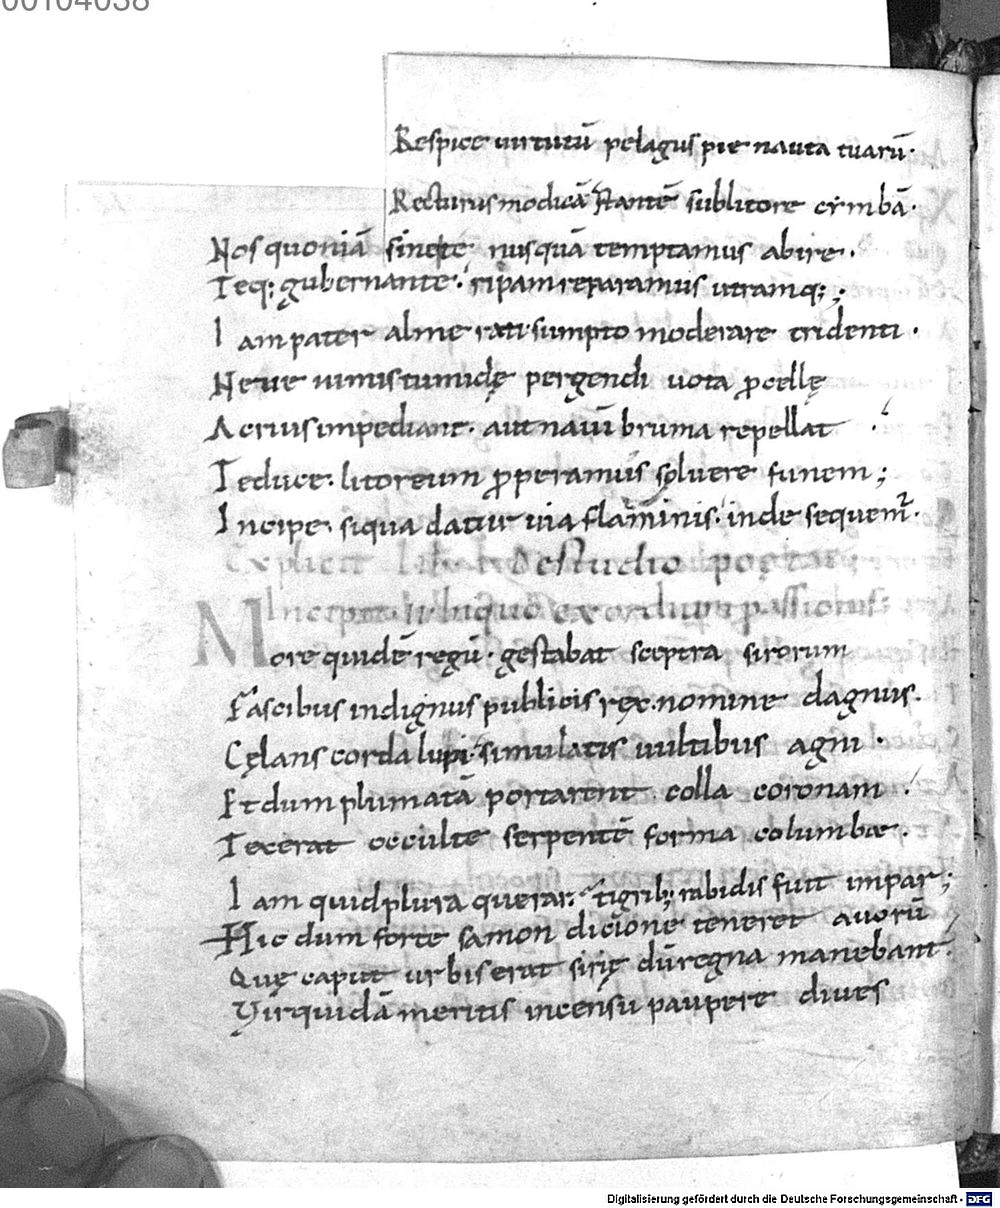 00104038
Respice uirtutū pelagus pie nauta tuarū·
Recturus modicā stantē sub litore cẏmbā·
Nos quoniā sine te nusquā temptamus abire·
Teq; gubernante· ripam reparamus utramq; ;
Iam pater alme rati sumpto moderare tridenti·
Neue nimis tumidę pergendi uota ꝓcellę
Acrius impediant· aut nauū bruma repellat
Te duce· litoreum ꝓperamus soluere funem;
Incipe· siqua datur uia flaminis· inde sequem̄·
Explicit de studio poętae;
Incipit in quo exordium passionis;
More quidē regū· gestabat sceptra sirorum
Fascibus indignus publicis rex· nomine dagnus·
Cęlans corda lupi· simulatis uultibus agni·
Et dum plumatā portarent colla coronam·
Texerat occulte serpentē forma columbae·
Iam quid plura querar· tigrib; rabidis fuit impar;
Hic dum forte samon dicione teneret auorū
Quę caput urbis erat sirię dū regna manebant·
Vir quidā meritis incensu paupere diues
Digitalisierung gefördert durch die Deutsche Forschungsgemeinschaft - DFG